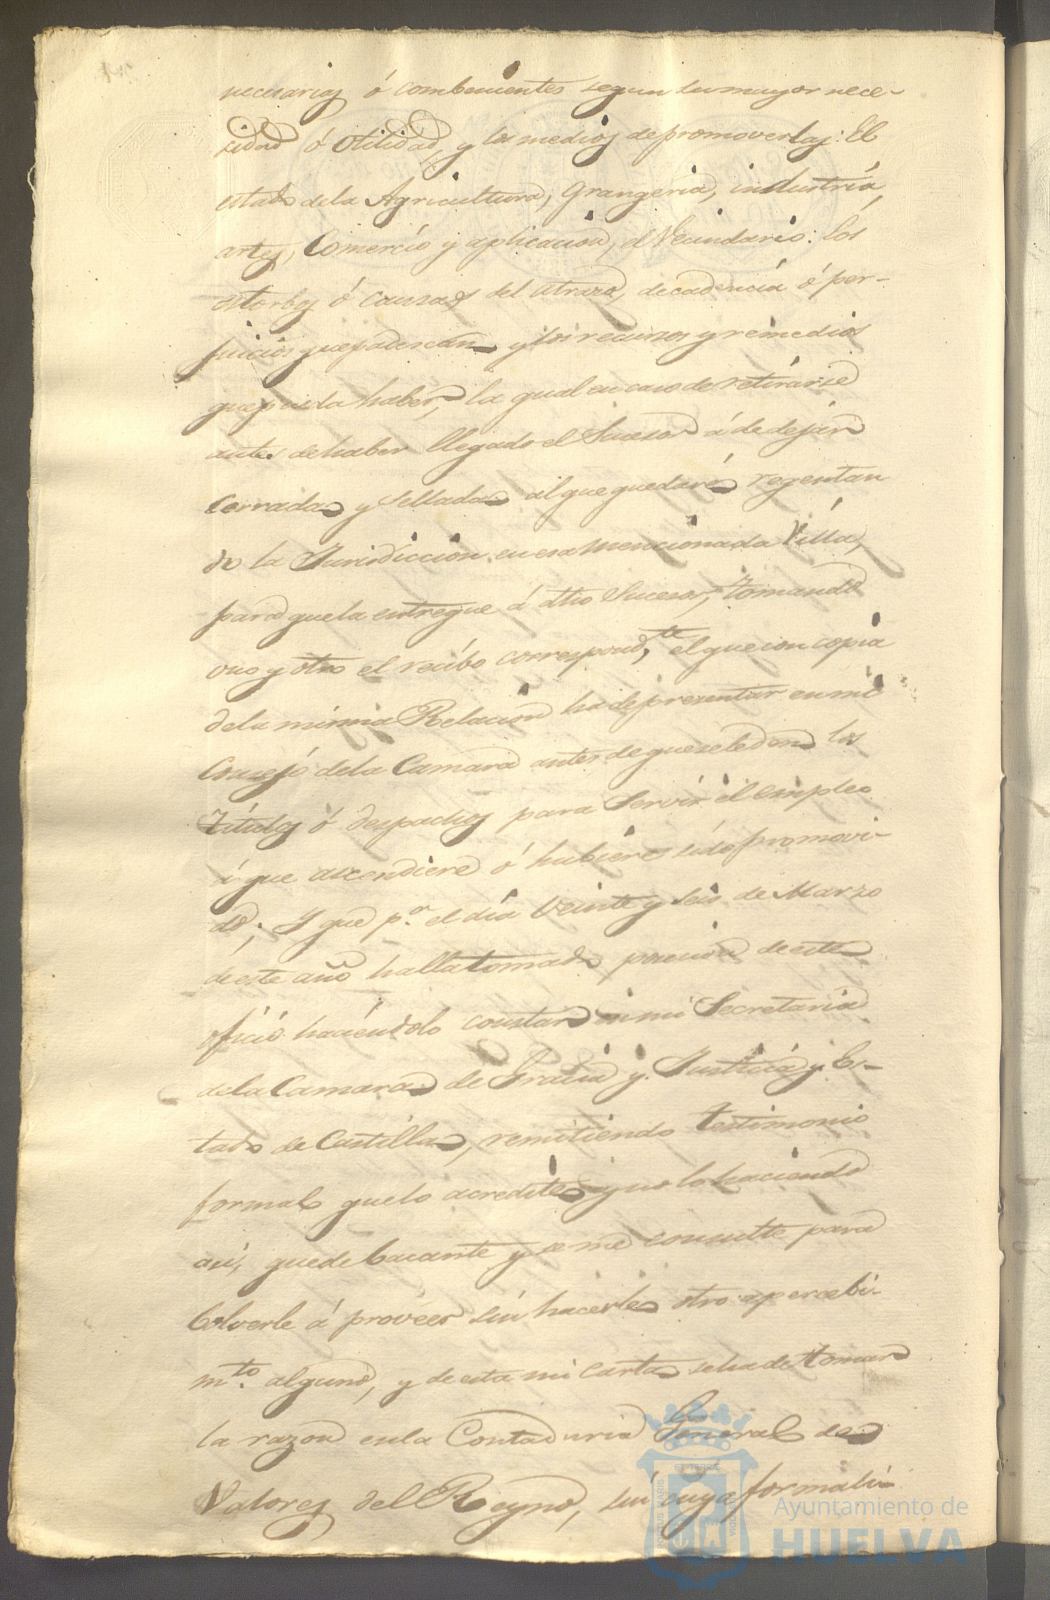 necesarias ó combenientes segun su mayor nece-
sidad ó Vtilidad, y los medios de promoverlas: El
estado dela Agricultura, Grangeria, industria,
artes, Comercio y aplicacion, el Vecindario: los
estorbos ó causas del atraso, decadencia ó per-
juicios que padescan y los recursos y remedios
que pueda haber, la qual en caso de retirarse
antes de haber llegado el Sucesor á de dejar
Cerrada y Sellada al que quedare regentan
do la Jurisdiccion en esa mencionada Villa,
para que la entregue á dho Sucesor, tomando
uno y otro el recibo correspond.te el que con copia
dela misma Relacion ha de presentar en mi
Consejo dela Camara antes de que se le den los
Titulos ó despachos para Servir el empleo
á que ascendiere ó hubiere sido promovi-
do; Y que p.r el dia Veinte y seis de Marzo
de este año halla tomado posesion de este
oficio haciendolo constar en mi Secretaria
dela Camara de Gracia y Justicia y Es-
tado de Castilla, remitiendo testimonio
formal que lo acredite y no lo haciendo
asi, quede bacante y se me consulte para
bolverle á proveer sin hacerle otro apercebi-
m.to alguno, y de esta mi Carta se ha de tomar
la razon en la Contaduria General de
Valores del Reyno, sin cuya formali-
Ayuntamiento de
HUELVA